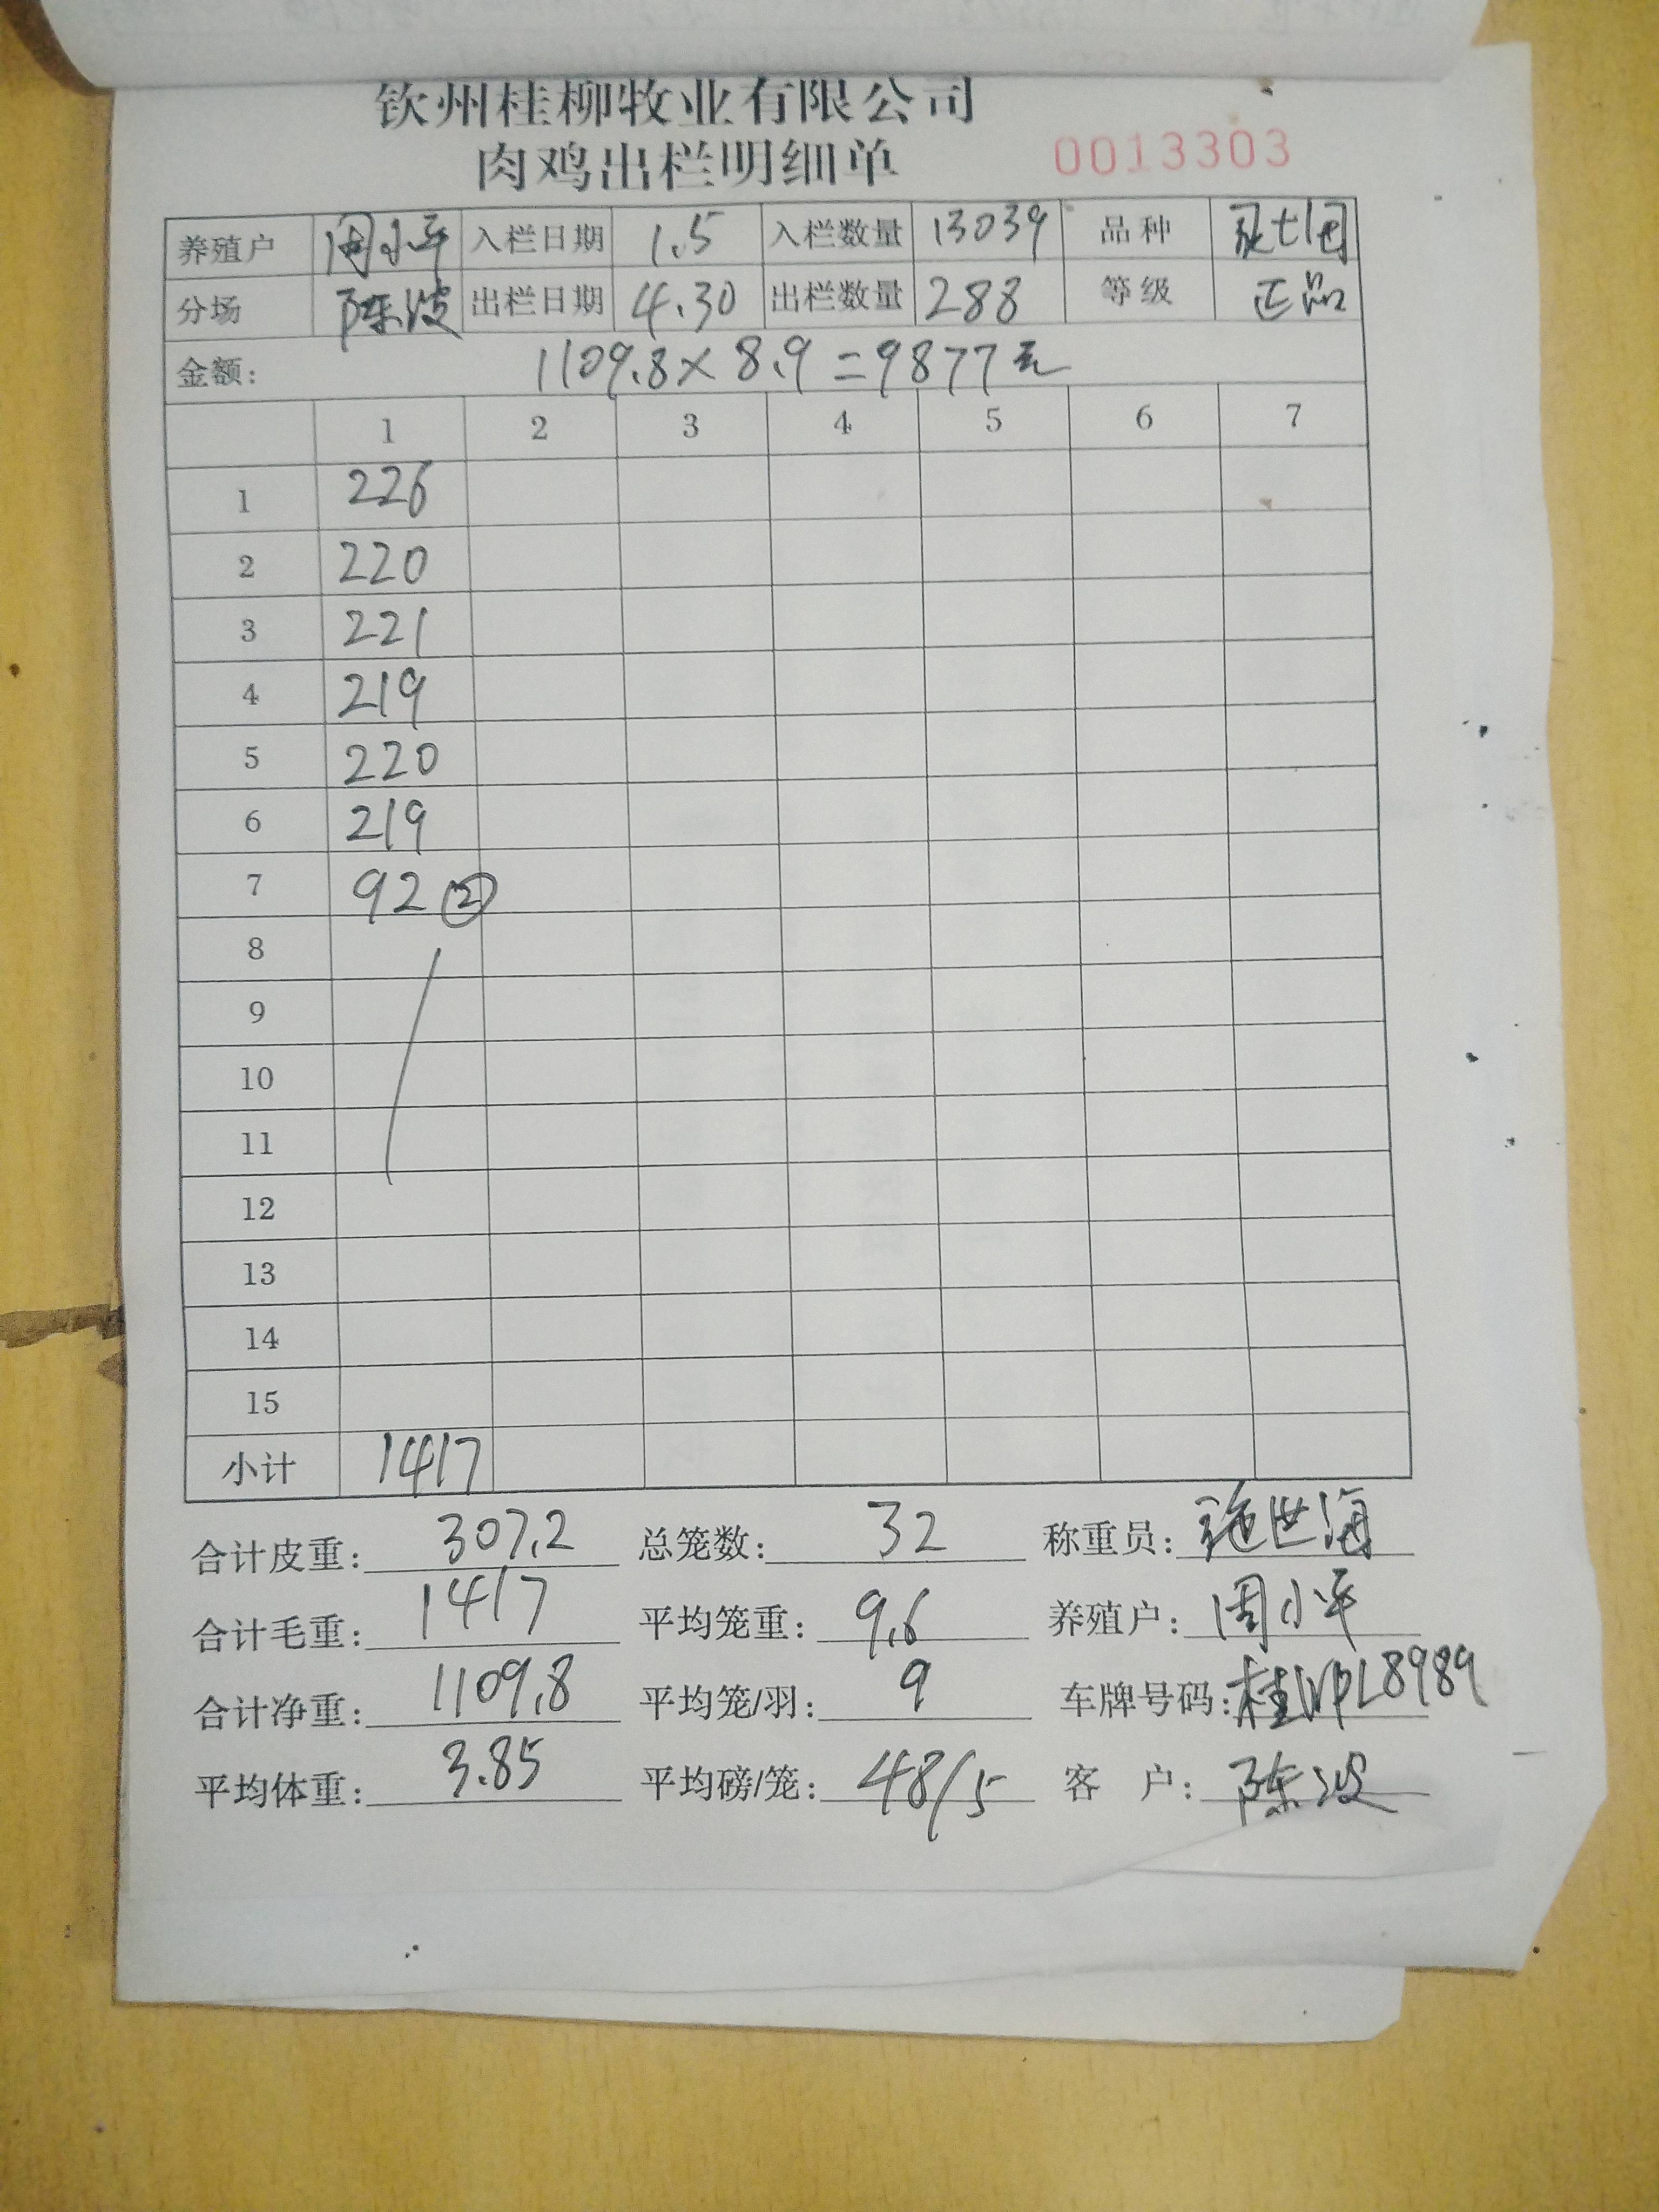 钦州桂柳牧业有限公司
肉鸡出栏明细单 0013303
养殖户 周小平 入栏日期 1.5 入栏数量 13039 品种
分场 陈波 出栏日期 4.30 出栏数量 288 等级 正品
金额: 1109.8×8.9=9877元
1 2 3 4 5 6 7
1 226
2 220
3 221
4 219
5 220
6 219
7 92 ②
8
9
10
11
12
13
14
15
小计 1417
合计皮重: 307.2 总笼数: 32 称重员: 施世海
合计毛重: 1417 平均笼重: 9.6 养殖户: 周小平
合计净重: 1109.8 平均笼/羽: 9 车牌号码:
平均体重: 3.85 平均磅/笼: 48/5 客 户: 陈波